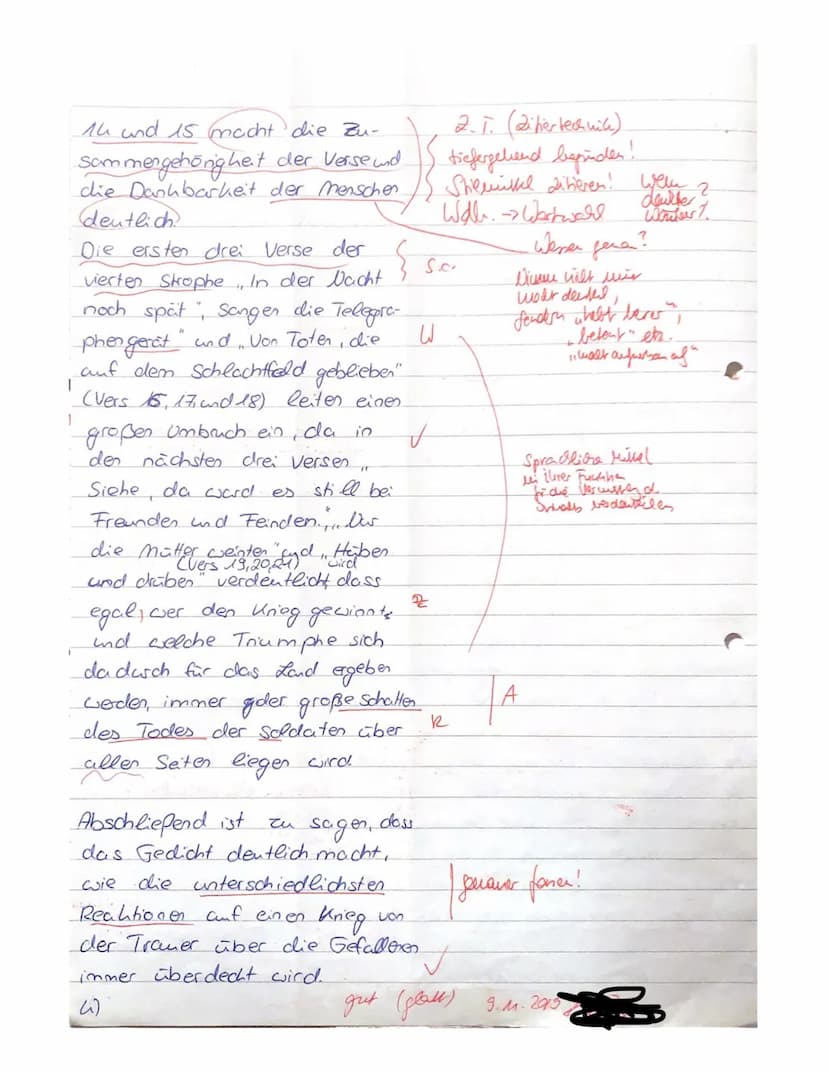 14 und 15 macht die Zu-
sammengehörigkeit der Verse und
die Dankbarkeit der Menschen
deutlich.
Z.T. (Zitiertechnik)
tiefergehend begründen!
Stilmittel zitieren!
Wdh. -> Wortwahl
Wem
dankbar
?
Wessen genau?
Die ersten drei Verse der
vierten Strophe „In der Nacht
noch spät", sangen die Telegra-
phengerät" und „Von Toten, die
auf dem Schlachtfeld geblieben"
(Vers 16, 17 und 18) leiten einen
großen Umbruch ein, da in
den nächsten drei Versen „
Siehe, da ward es still bei
Freunden und Feinden.", „Nur
die Mütter weinten" und „Hüben
(Vers 19,20,21) wird
und drüben" verdeutlicht dass
egal, wer den Krieg gewinnt,
und welche Triumphe sich
dadurch für das Land ergeben
werden, immer der große Schatten
des Todes der Soldaten über
allen Seiten liegen wird
S.C.
nicht mehr
macht deutlich,
sondern „hebt hervor",
„betont" etc.
„macht aufmerksam auf"
W
Sprachliche Mittel
in ihrer Funktion
für die
Inhalts
Z
A
R
Abschließend ist zu sagen, dass
das Gedicht deutlich macht,
wie die unterschiedlichsten
Reaktionen auf einen Krieg von
der Trauer über die Gefallenen
immer überdeckt wird.
genauer fassen!
gut (glatt) 9.11.2019